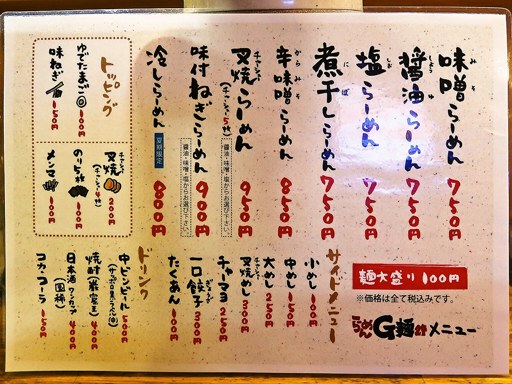 味噌らーめん 750円
醤油らーめん 750円
塩らーめん 750円
煮干しらーめん 750円
辛味噌らーめん 850円
叉焼らーめん(チャーシュー5枚) 950円
醤油・味噌・塩からお選び下さい。
味付ねぎらーめん 900円
醤油・味噌・塩からお選び下さい。
冷しらーめん 夏期限定 800円
トッピング
ゆでたまご 100円
味ねぎ 150円
叉焼(チャーシュー4枚) 200円
のり5枚 100円
メンマ 100円
麺大盛り 100円
※価格は全て税込みです。
らーめんG麺 メニュー
サイドメニュー
小めし 100円
中めし 150円
大めし 250円
叉焼めし 300円
チャーマヨ 250円
一口餃子 300円
たくあん 100円
ドリンク
中ビンビール 500円
(サッポロ黒ラベル)
焼酎 400円
日本酒ワンカップ 400円
(國稀)
コカ・コーラ 150円